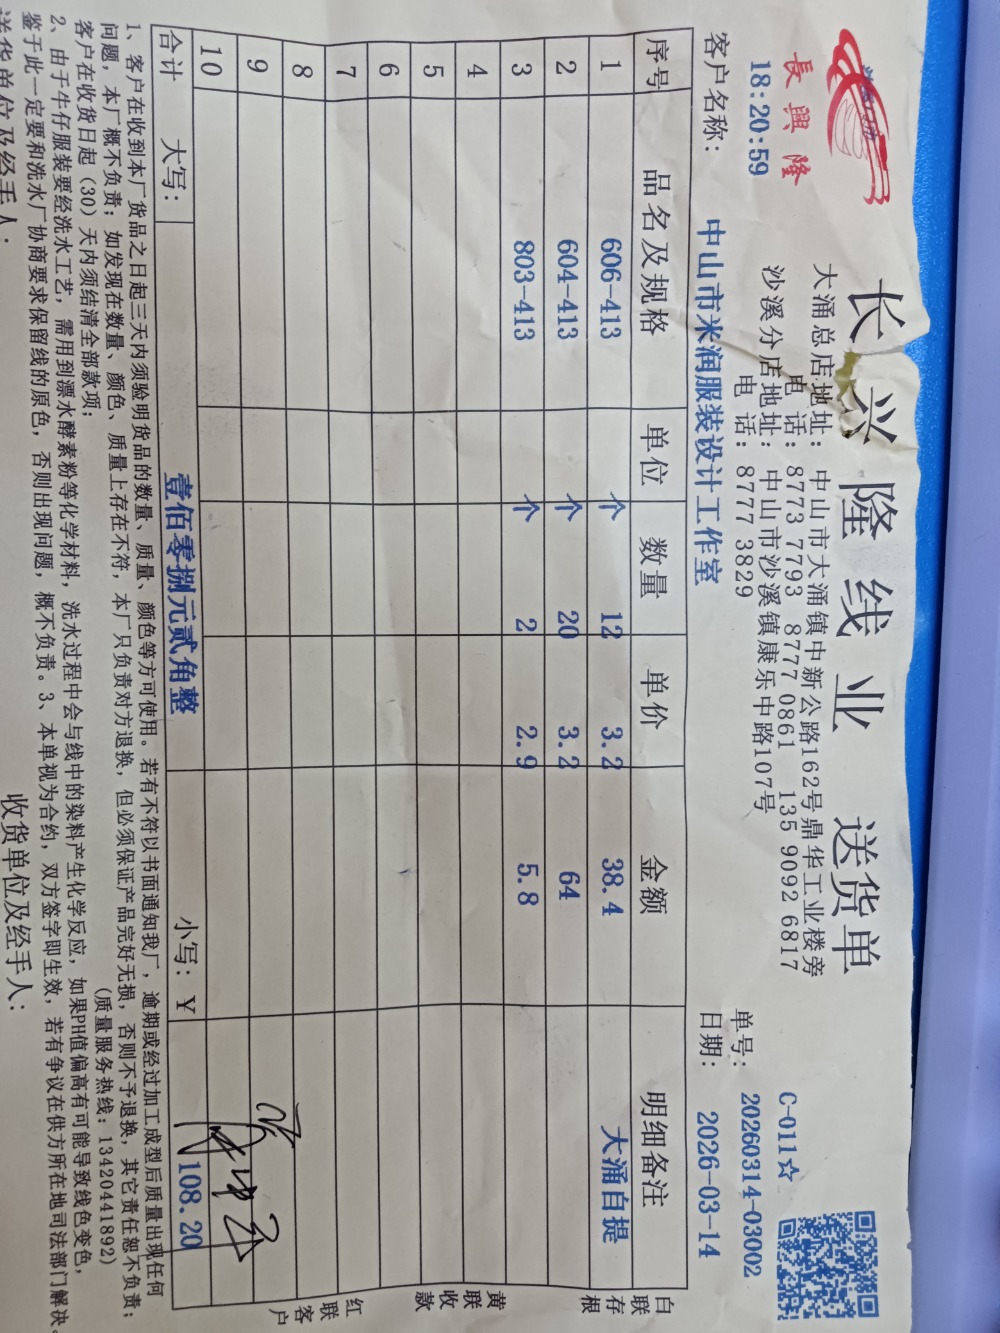 長興隆
18:20:59
长兴隆线业 送货单
大涌总店地址：中山市大涌镇中新公路162号鼎华工业楼旁
电 话：8773 7793 8777 0861 135 9092 6817
沙溪分店地址：中山市沙溪镇康乐中路107号
电 话：8777 3829
C-011☆
单号：20260314-03002
客户名称：中山市米润服装设计工作室
日期：2026-03-14
序号 品名及规格 单位 数量 单价 金额 明细备注
1 606-413 个 12 3.2 38.4 大涌自提
2 604-413 个 20 3.2 64
3 803-413 个 2 2.9 5.8
4
5
6
7
8
9
10
合计 大写： 壹佰零捌元贰角整 小写：￥ 108.20
白联存根
黄联收款
红联客户
1、客户在收到本厂货品之日起三天内须验明货品的数量、质量、颜色等方可使用。若有不符以书面通知我厂，逾期或经过加工成型后质量出现任何
问题，本厂概不负责；如发现在数量、颜色、质量上存在不符，本厂只负责对方退换，但必须保证产品完好无损，否则不予退换，其它责任恕不负责；
客户在收货日起（30）天内须结清全部款项； （质量服务热线：13420441892）
2、由于牛仔服装要经洗水工艺，需用到漂水酵素粉等化学材料，洗水过程中会与线中的染料产生化学反应，如果PH值偏高有可能导致线色变色，
鉴于此一定要和洗水厂协商要求保留线的原色，否则出现问题，概不负责。3、本单视为合约，双方签字即生效，若有争议在供方所在地司法部门解决。
送货单位及经手人： 收货单位及经手人：